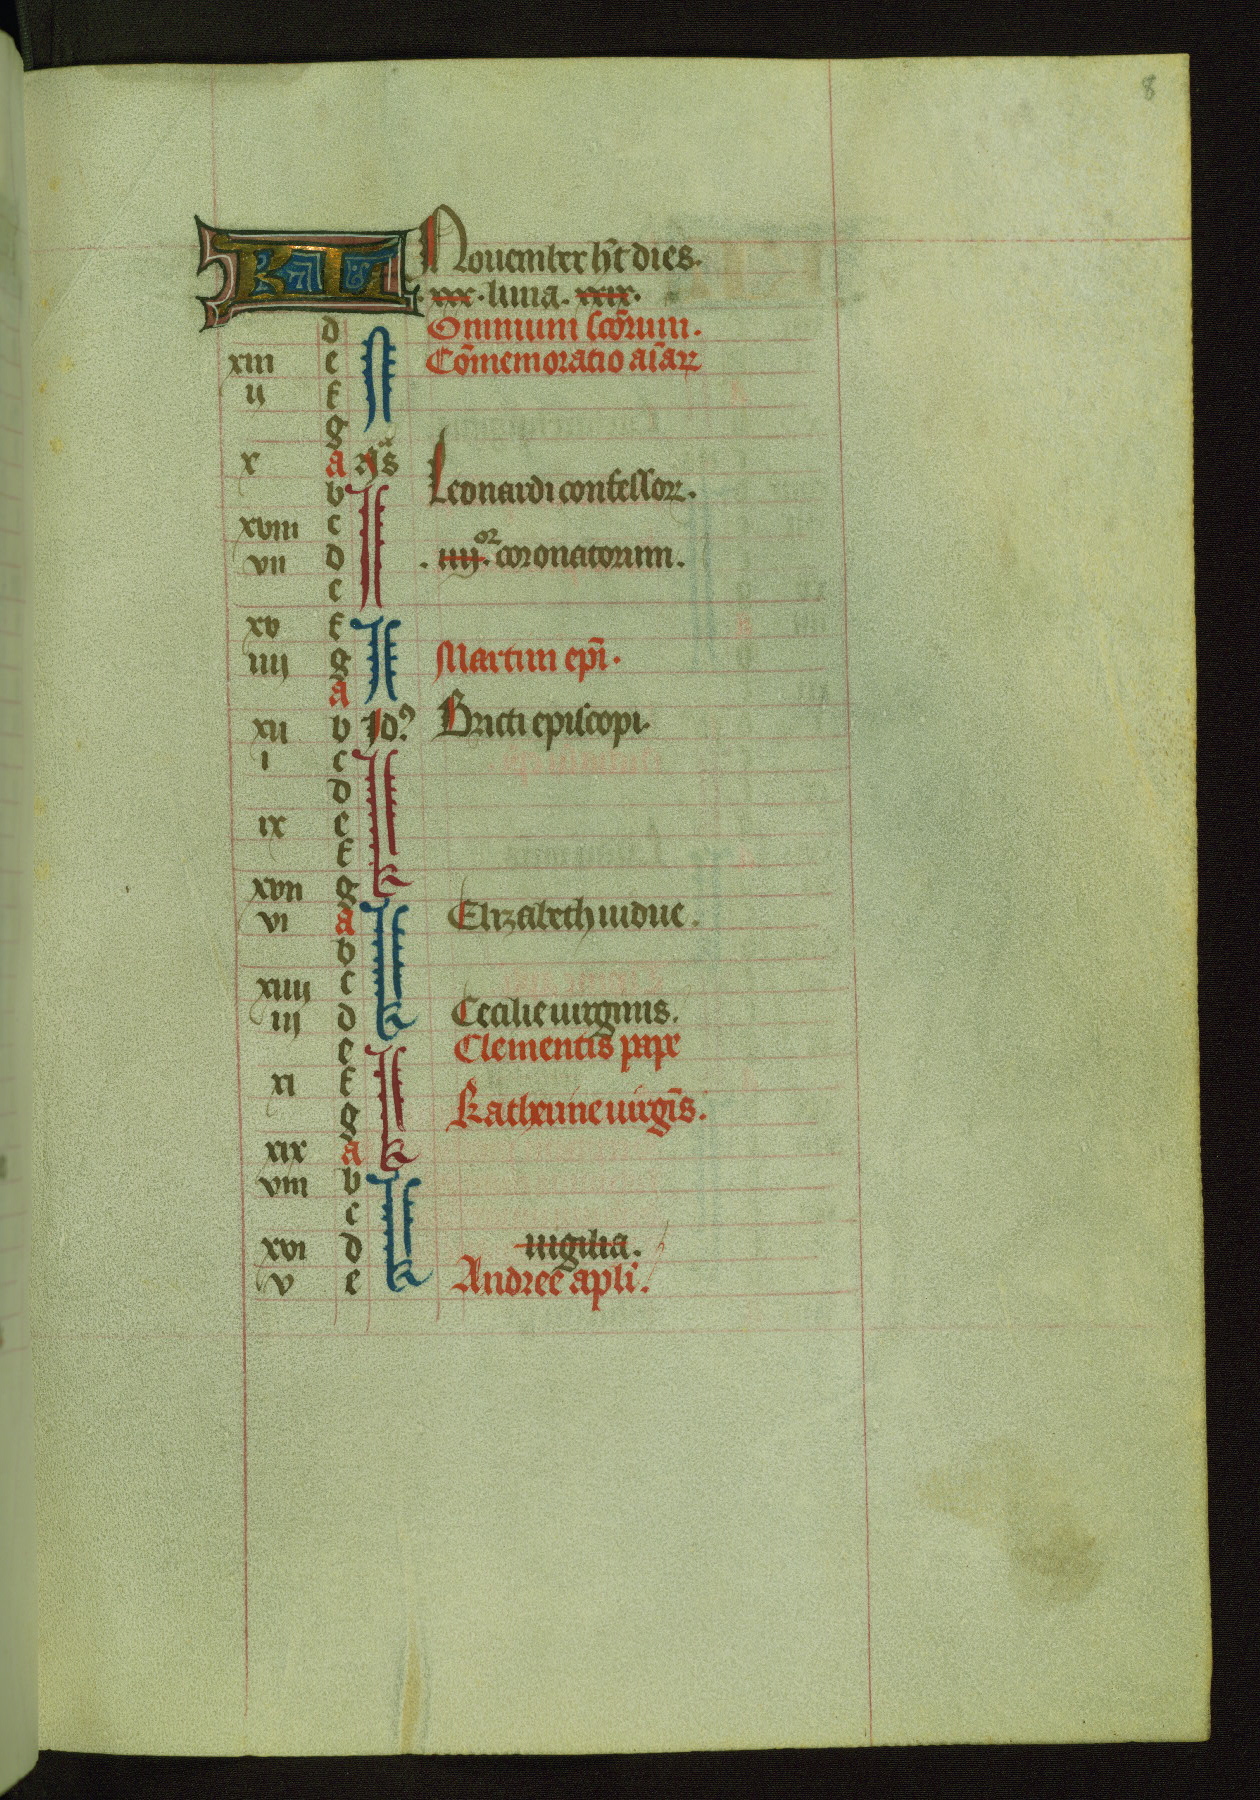 8
KL Nouember h̄t dies.
.xxx. luna. xxix.
d N Omnium sc̄orum.
xiii e Cōmemoratio aīaꝝ
ij f
g
x a Nꝰs
b I Leonardi confessor.
xviii c
vii d .iiij.or coronatorum.
e
xv f I
iiij g Martini ep̄i.
a
xii b Idꝰ. Bricti episcopi.
i c I
d
ix e
f
xvii g k
vi a I Elizabeth uidue.
b
xiiij c
iij d k Cecilie uirginis.
e I Clementis pape
xi f
g Katherine uirgīs.
xix a k
viii b I
c
xvi d uigilia.
v e k Andree apl̄i.